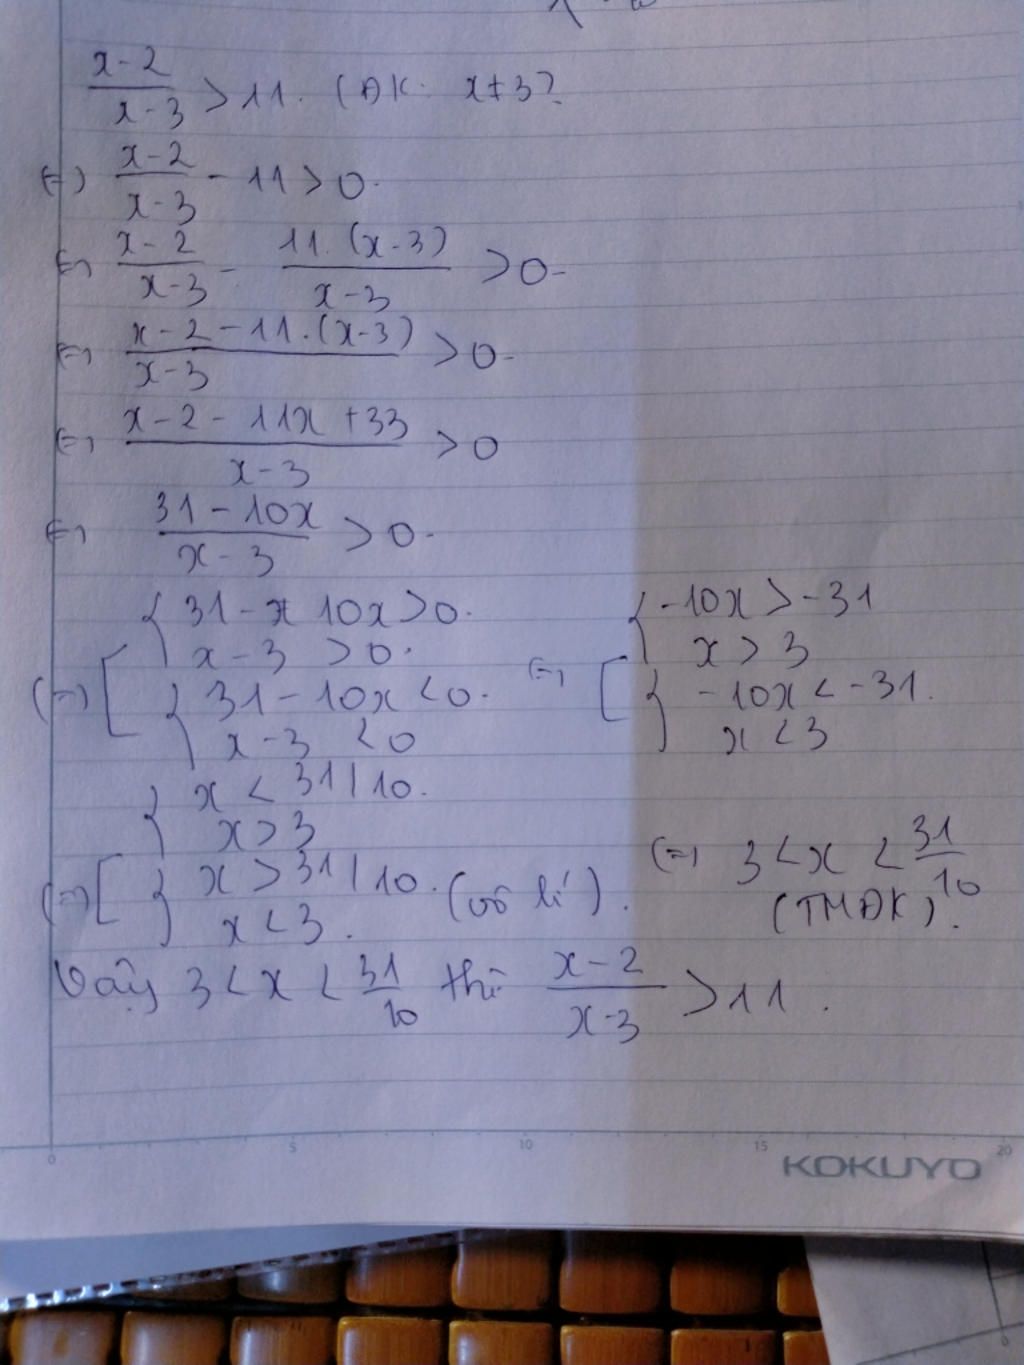 x-2/x-3 > 11. (ĐK: x≠3)
(=) x-2/x-3 - 11 > 0.
(=) x-2/x-3 - 11.(x-3)/x-3 > 0.
(=) x-2-11.(x-3)/x-3 > 0.
(=) x-2-11x+33/x-3 > 0
(=) 31-10x/x-3 > 0.
(=) [ { 31 - 10x > 0. x-3 > 0. { 31-10x < 0. x-3 < 0
(=) [ { -10x > -31 x > 3 { -10x < -31. x < 3
(=) [ { x < 31/10. x > 3 { x > 31/10. x < 3. (vô lí).
(=) 3 < x < 31/10
(TMĐK).
Vậy 3 < x < 31/10 thì x-2/x-3 > 11.
0 5 10 15 20
KOKUYO